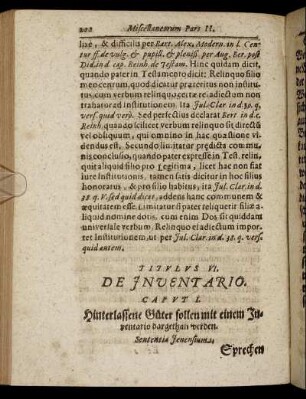 222 Miscellaneorum Pars II.
liæ, & difficilis per Bart. Alex. Modern. in l. Cen-
tur. ff. de vulg. & pupill. & pleniss. per Aug. Ber. post
Did. ind. cap. Reinh. de Testam. Hinc quidam dicit,
quando pater in Testamento dicit: Relinquo filio
meo centum, quod dicatur præteritus non institu-
tus, cum verbum relinquo, certæ rei adiectum non
trahatur ad Institutionem. ita Jul. Clar. in d. 39. q.
vers. quod verò. Sed perfectius declarat Ber. in d. c.
Reinh. quando scilicet verbum relinquo sit directū
vel obliquum, qui omnino in hac quæstione vi-
dendus est. Secundo limitatur prædicta commu-
nis conclusio, quando pater expressè in Test. relin-
quit aliquid filio pro Legitima, licet hac non fiat
iure Institutionis, tamen satis dicitur in hoc filius
honoratus, & pro filio habitus, ita Jul. Clar. in d.
38. q. V. sed quid dices, addens hanc communem &
æquitate esse. Limitatur si pater reliquerit filiæ
aliquid nomine dotis, cum enim Dos sit quiddam
universale verbum. Relinquo ei adiectum impor-
tet Institutionem, ut per Jul. Clar. in d. 38. q. vers.
quid autem.
TITULUS VI.
DE INVENTARIO.
CAPUT I.
Hinterlassene Güter sollen mit einem In-
ventario dargethan werden.
Sententia Jenensium.
Sprechen